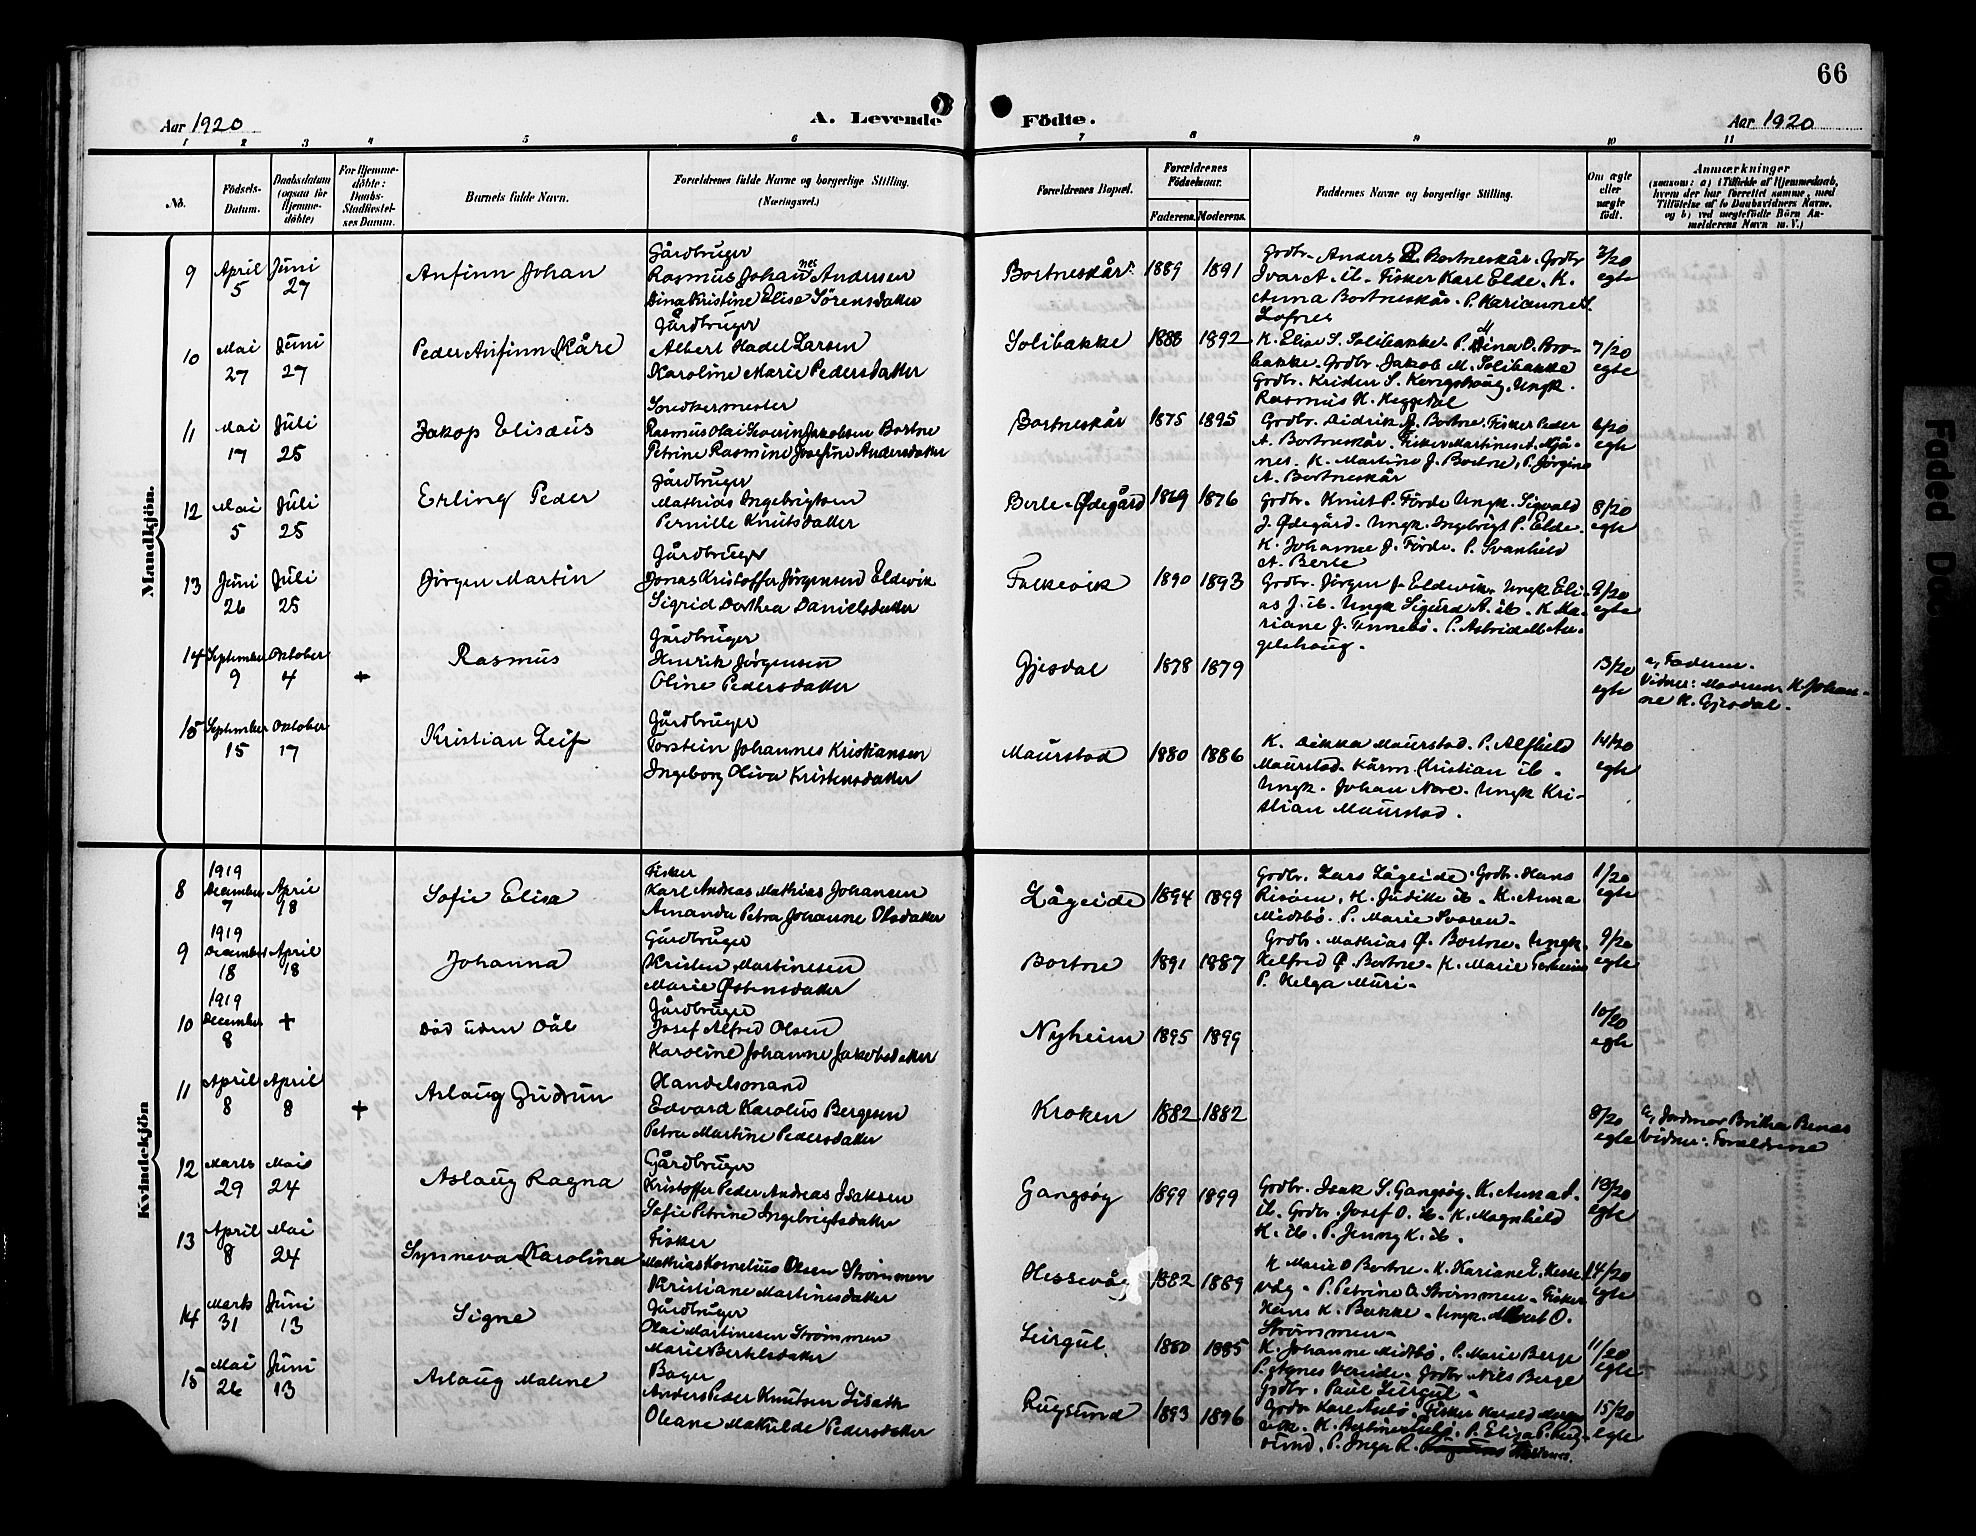 66
Aar 1920
A. Levende
Födte.
Aar 1920
1 2 3 4 5 6 7 8 9 10 11
No.
Födsels-Datum.
Daabsdatum (ogsaa for Hjemme-döbte)
For Hjemme-döbte: Daabs-Stadfæstel-ses Datum.
Barnets fulde Navn.
Forældrenes fulde Navne og borgerlige Stilling.
(Næringsvei.)
Forældrenes Bopæl.
Forældrenes Födselsaar.
Faderens. Moderens.
Faddernes Navne og borgerlige Stilling.
Om ægte eller uægte födt.
Anmærkninger
(saasom: a) i Tilfælde af Hjemmedaab, hvem der har forrettet samme, med Tilföielse af to Daabsvidners Navne, og b) ved uægtefödte Börn An-melderens Navn m. V.)
Mandkjön.
9 April 5 Juni 27 Anfinn Johan
Gårdbruger
Rasmus Johannes Andersen
Dina Kristine Elise Sörensdatter
Bortneskår 1889 1891
Grdbr. Anders R. Bortneskår. Grdbr
Ivar A. ib. Fisker Karl Elde. K.
Anna Bortneskår. P. Karianne
Lofnes
3/20 egte
10 Mai 27 Juni 27 Peder Anfinn Kåre
Gårdbruger
Albert Kadel Larsen
Karoline Marie Pedersdatter
Solibakke 1888 1892
K. Elise S. Solibakke. P. Dina O. Bro-
bakke. Grdbr. Jakob M. Solibakke
Grdbr. Kristen S. Kongshoug. Ungk.
Rasmus K. Heggedal
7/20 egte
11 Mai 17 Juli 25 Jakop Elisæus
Snedkermester
Rasmus Olai Severin Jakobsen Bortne
Petrine Rasmine Josefine Andersdatter
Bortneskår 1875 1895
Grdbr. Didrik J. Bortne. Fisker Peder
A. Bortneskår. Fisker Martines A.
K. Martine J. Bortne, P. Jörgine
A. Bortneskår
6/20 egte
12 Mai 5 Juli 25 Erling Peder
Gårdbruger
Mathias Ingebrigtsen
Pernille Knutsdatter
Berle-Ødegård 1869 1876
Grdbr. Knut P. Förde. Ungk. Sigvald
J. Ødegård. Ungk. Ingebrigt P. Elde.
K. Johanne J. Förde. P. Svanhild
A. Berle
8/20 egte
13 Juni 26 Juli 25 Jörgen Martin
Gårdbruger
Jonas Kristoffer Jörgensen Eldevik
Sigrid Dorthea Danielsdatter
Falkevik 1890 1893
Grdbr. Jörgen J. Eldevik. Ungk Eli-
as J. ib. Ungk Sigurd A. ib. K. Ma-
riane J. Tennebö. P. Astrid M. An-
gelshaug.
9/20 egte
14 September 9 Oktober 4 + Rasmus
Gårdbruger
Henrik Jörgensen
Oline Pedersdatter
Gjesdal 1878 1879
13/20 egte
a, Faderen.
Vidner: Moderen K. Johan-
ne K. Gjesdal.
15 September 15 Oktober 17 Kristian Leif
Gårdbruger
Torstein Johannes Kristiansen
Ingeborg Oliva Kristensdatter
Maurstad 1880 1886
K. Dikka Maurstad. P. Alfhild
Maurstad. Kårm. Kristian ib.
Ungk. Johan Nore. Ungk Kri-
stian Maurstad.
14/20 egte
Kvindekjön
8 1919 December 7 April 18 Sofie Elisa
Fisker
Karl Andreas Mathias Johansen
Amanda Petra Johanne Olsdatter
Lågeide 1894 1899
Grdbr. Lars Lågeide. Grdb. Hans
Risöen. K. Juditte ib. K. Anna
Midtbö. P. Marie Svoren.
1/20 egte
9 1919 December 18 April 18 Johanna
Gårdbruger
Kristen Martinesen
Marie Østensdatter
Bortne 1891 1887
Grdbr. Mathias Ø. Bortne. Ungk.
Helfred Ø. Bortne. K. Marie
P. Helga Muri.
9/20 egte
10 1919 December 8 + Död uden Dåb
Gårdbruger
Josef Alfred Olsen
Karoline Johanne Jakobsdatter
Nyheim 1895 1899
10/20 egte
11 April 8 April 8 + Aslaug Gudrun
Handelsmand
Edvard Karolus Bergesen
Petra Martine Pedersdatter
Kroken 1882 1882
8/20 egte
a, Jordmor Brithe Benes
Vidner: Forældrene
12 Marts 29 Mai 24 Aslaug Ragna
Gårdbruger
Kristoffer Peder Andreas Isaksen
Sofie Petrine Ingebrigtsdatter
Gangsög 1899 1899
Grdbr. Isak S. Gangsög. K. Anna S.
ib. Grdbr. Josef O. ib. K. Magnhild
K. ib. P. Jenny K. ib.
13/20 egte
13 April 8 Mai 24 Synneva Karolina
Fisker
Mathias Kornelius Olsen Strömmen
Kristiane Martinesdatter
Hessevåg 1882 1889
K Marie O Bortne. K. Kariane E. Hesse
våg. P. Petrine O. Strömmen. Fisker
Hans K. Bakke. Ungk. Albert O.
Strömmen.
14/20 egte
14 Marts 31 Juni 13 Signe
Gårdbruger
Olai Martinesen Strömmen
Marie Bertelsdatter
Leirgul. 1880 1885
K. Johanne Midtbö. P. Marie Berge
P. Agnes Vereide. Grdbr Nils Berge
Grdbr. Paul Leirgul.
11/20 egte
15 Mai 26 Juni 13 Aslaug Malene
Bager
Anders Peder Knutsen Liseth
Oleane Mathilde Pedersdatter
Rugsund 1893 1896
Grdbr Karl Aasebö. Fisker Harald
K. P. Elise P. Rug-
sund. P. Inga R.
15/20 egte
Faded D